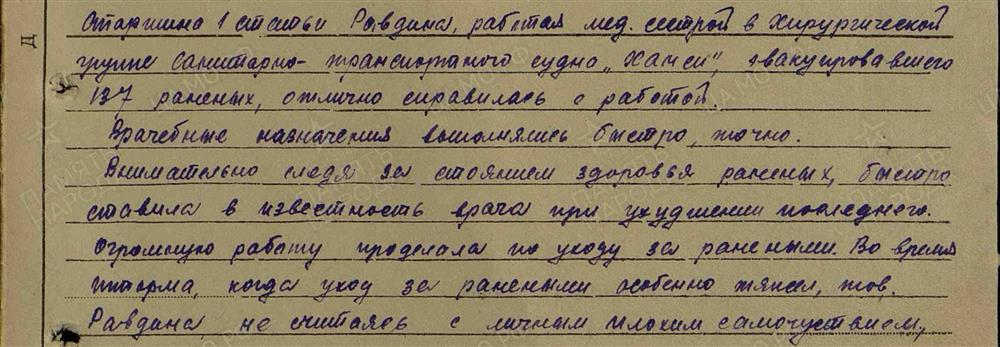 Старшина 1 статьи Равдина, работая мед. сестрой в хирургической
группе санитарно-транспортного судна „Ханси", эвакуировавшего
137 раненых, отлично справилась с работой.
Врачебные назначения выполнялись быстро, точно.
Внимательно следя за стоянием здоровья раненых, быстро
ставила в известность врача при ухудшении последнего.
Огромную работу проделала по уходу за ранеными. Во время
шторма, когда уход за ранеными особенно тяжел, тов.
Равдина не считаясь с личным плохим самочуствием,
Д